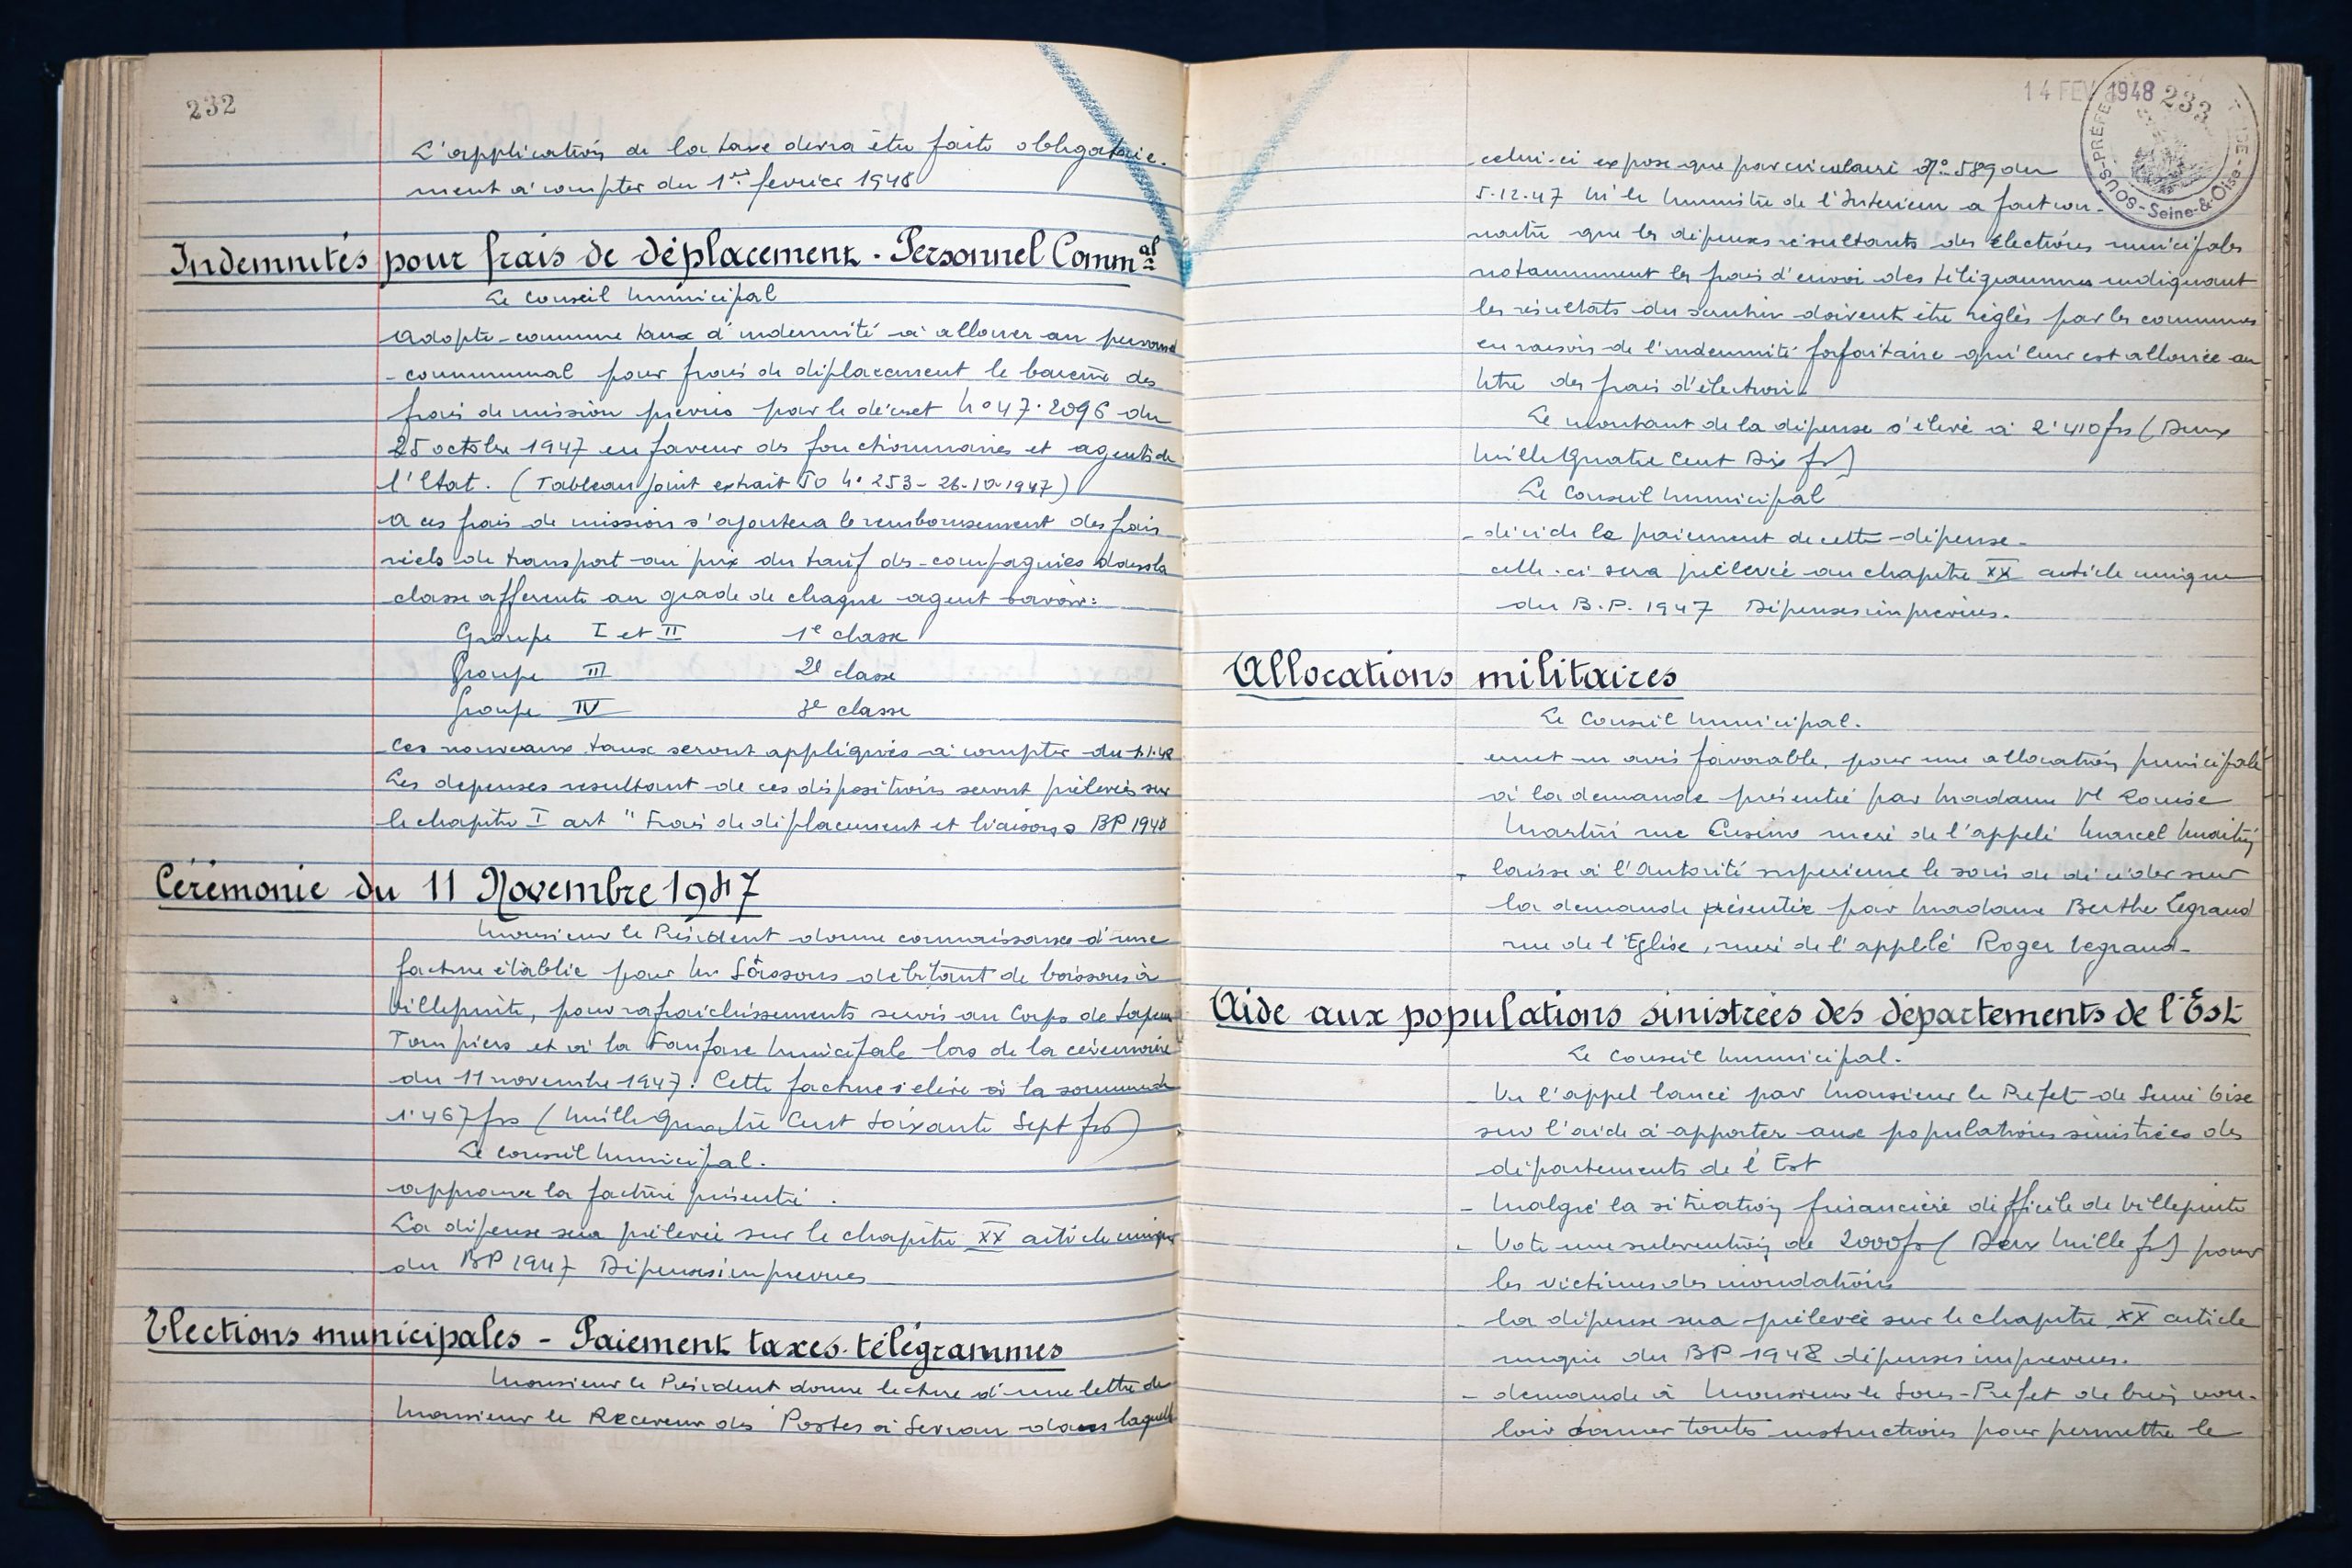 232
L'application de la taxe devra être faite obligatoire-
ment à compter du 1er fevrier 1948
Indemnités pour frais de déplacement. Personnel Commal
Le Conseil Municipal
adopte comme taux d'indemnité à allouer au personnel
communal pour frais de déplacement le barème des
frais de mission prévus par le décret No 47.2096 du
25 octobre 1947 en faveur des fonctionnaires et agents de
l'Etat. (Tableau joint extrait JO No 253 - 26-10-1947)
A ces frais de mission s'ajoutera le remboursement des frais
réels de transport au prix du tarif des compagnies dans la
classe afferente au grade de chaque agent savoir:
Groupe I et II 1e classe
Groupe III 2e classe
Groupe IV 3e classe
Ces nouveaux taux seront appliqués à compter du 1.1.48
Les depenses resultant de ces dispositions seront prélevées sur
le chapitre I art " Frais de déplacement et liaisons BP 1948
Cérémonie du 11 Novembre 1947
Monsieur le Président donne connaissance d'une
facture établie par Mr debitant de boissons à
Villepinte, pour rafraichissements servis au Corps de Sapeurs
Pompiers et à la Fanfare Municipale lors de la cérémonie
du 11 novembre 1947. Cette facture s'elève à la somme de
1.467 frs (Mille Quatre Cent Soixante Sept frs)
Le Conseil Municipal.
approuve la facture présentée.
La dépense sera prélevée sur le chapitre XX article unique
du BP 1947 Dépenses imprevues
Elections municipales - Paiement taxes télégrammes
Monsieur le Président donne lecture d'une lettre de
Monsieur le Receveur des Postes à Sevran dans laquelle
14 FEV 1948 233
SOUS-PRÉFE Seine-&-Oise
celui-ci expose que par circulaire No 589 du
5.12.47 Mr le Ministre de l'Interieur a fait con-
naitre que les dépenses résultants des élections municipales
notamment les frais d'envoi des télégrammes indiquant
les résultats du scrutin doivent être réglés par les communes
en raison de l'indemnité forfaitaire qui leur est allouée au
titre des frais d'élection.
Le montant de la dépense s'élève à 2.410 frs (Deux
Mille Quatre Cent Dix frs)
Le Conseil Municipal
- décide le paiement de cette dépense.
celle-ci sera prélevée au chapitre XX article unique
du B.P. 1947 Dépenses imprévues.
Allocations militaires
Le Conseil Municipal.
- emet un avis favorable, pour une allocation principale
à la demande présentée par Madame Ve Louise
Martin rue mère de l'appelé Marcel Martin
- laisse à l'Autorité superieure le soin de décider sur
la demande présentée par Madame Berthe Legrand
rue de l'Eglise, mère de l'appelé Roger Legrand
Aide aux populations sinistrées des départements de l'Est
Le Conseil Municipal.
- Vu l'appel lancé par Monsieur le Préfet de Seine Oise
sur l'aide à apporter aux populations sinistrées des
départements de l'Est
- Malgré la situation financière difficile de Villepinte
- Vote une subvention de 2000 frs (Deux Mille frs) pour
les victimes des inondations
- la dépense sera prélevée sur le chapitre XX article
unique du BP 1948 dépenses imprevues.
- demande à Monsieur le Sous-Préfet de bien vou-
loir donner toutes instructions pour permettre le